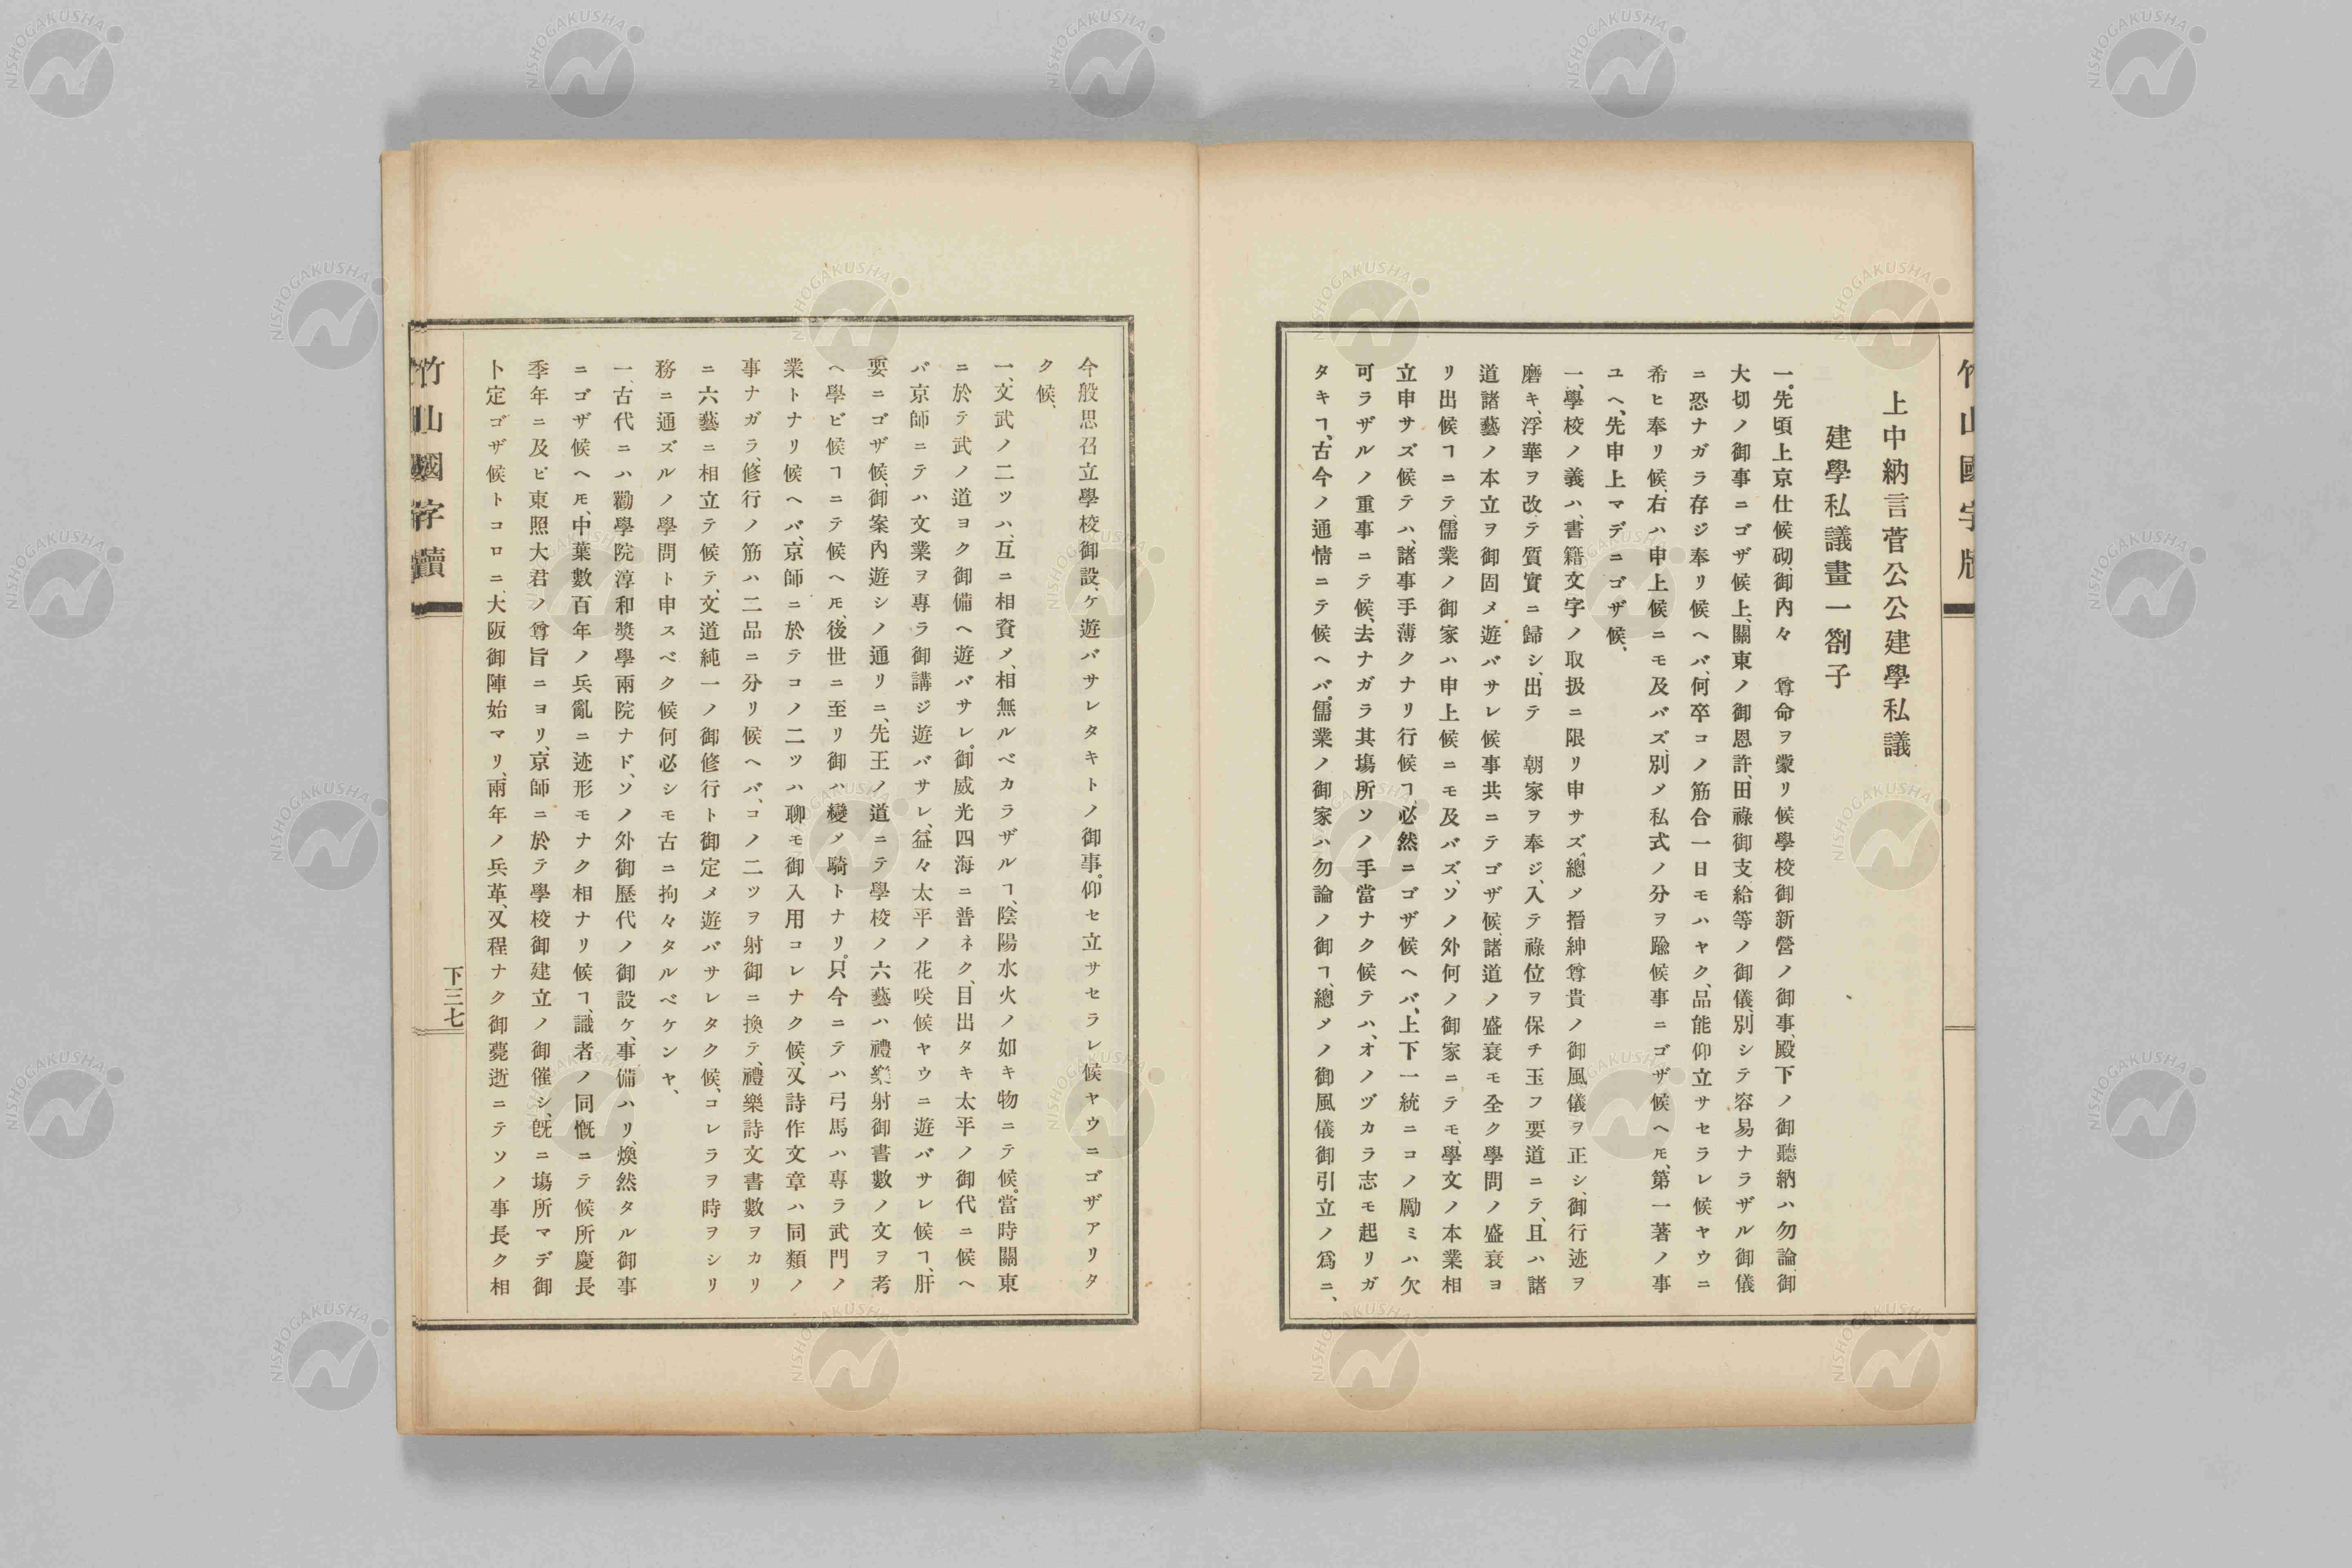 竹山國字牘
上中納言菅公公建學私議
建學私議畫一劄子
一。先頃上京仕候砌、御內々　尊命ヲ蒙リ候學校御新營ノ御事、殿下ノ御聽納ハ勿論、御
大切ノ御事ニゴザ候上、關東ノ御恩許、田祿御支給等ノ御儀、別シテ容易ナラザル御儀
ニ恐ナガラ存ジ奉リ候ヘバ、何卒コノ筋合一日モハヤク、品能仰立サセラレ候ヤウニ
希ヒ奉リ候、右ハ申上候ニモ及バズ、別〆私式ノ分ヲ踰候事ニゴザ候ヘ𪜈、第一著ノ事
ユヘ、先申上マデニゴザ候、
一、學校ノ義ハ、書籍文字ノ取扱ニ限リ申サズ、總〆搢紳尊貴ノ御風儀ヲ正シ、御行迹ヲ
磨キ、浮華ヲ改テ質實ニ歸シ、出テ　朝家ヲ奉ジ、入テ祿位ヲ保チ玉フ要道ニテ、且ハ諸
道諸藝ノ本立ヲ御固メ遊バサレ候事共ニテゴザ候、諸道ノ盛衰モ全ク學問ノ盛衰ヨ
リ出候ヿニテ、儒業ノ御家ハ申上候ニモ及バズ、ソノ外何ノ御家ニテモ、學文ノ本業相
立申サズ候テハ、諸事手薄クナリ行候ヿ、必然ニゴザ候ヘバ、上下一統ニコノ勵ミハ欠
可ラザルノ重事ニテ候、去ナガラ其塲所ソノ手當ナク候テハ、オノヅカラ志モ起リガ
タキヿ、古今ノ通情ニテ候ヘバ。儒業ノ御家ハ勿論ノ御ヿ、總〆ノ御風儀御引立ノ爲ニ、
今般思召立學校御設ケ遊バサレタキトノ御事。仰セ立サセラレ候ヤウニゴザアリタ
ク候、
一、文武ノ二ツハ、互ニ相資〆、相無ルベカラザルヿ、陰陽水火ノ如キ物ニテ候。當時關東
ニ於テ武ノ道ヨク御備ヘ遊バサレ。御威光四海ニ普ネク、目出タキ太平ノ御代ニ候ヘ
バ京師ニテハ文業ヲ專ラ御講ジ遊バサレ、益々太平ノ花咲候ヤウニ遊バサレ候ヿ、肝
要ニゴザ候、御案內遊シノ通リニ、先王ノ道ニテ學校ノ六藝ハ禮樂射御書數ノ文ヲ考
ヘ學ビ候ヿニテ候ヘ𪜈、後世ニ至リ御ハ變〆騎トナリ。只今ニテハ弓馬ハ專ラ武門ノ
業トナリ候ヘバ、京師ニ於テコノ二ツハ聊モ御入用コレナク候、又詩作文章ハ同類ノ
事ナガラ、修行ノ筋ハ二品ニ分リ候ヘバ、コノ二ツヲ射御ニ換テ、禮樂詩文書數ヲカリ
ニ六藝ニ相立テ候テ、文道純一ノ御修行ト御定メ遊バサレタク候、コレラヲ時ヲシリ
務ニ通ズルノ學問ト申スベク候何必シモ古ニ拘々タルベケンヤ、
一、古代ニハ勸學院淳和奬學兩院ナド、ソノ外御歷代ノ御設ケ、事備ハリ、煥然タル御事
ニゴザ候ヘ𪜈、中葉數百年ノ兵亂ニ迹形モナク相ナリ候ヿ、識者ノ同慨ニテ候所慶長
季年ニ及ビ東照大君ノ尊旨ニヨリ、京師ニ於テ學校御建立ノ御催シ、旣ニ塲所マデ御
卜定ゴザ候トコロニ、大阪御陣始マリ、兩年ノ兵革、又程ナク御薨逝ニテソノ事長ク相
竹山國字牘
下三七